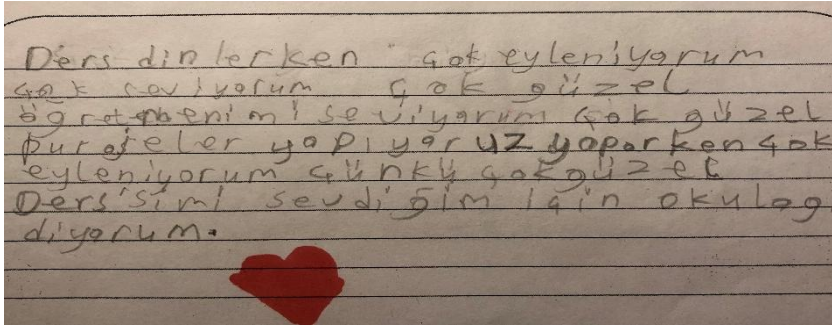 Ders dinlerken çok eyleniyorum
çok seviyorum çok güzel
ögretmenimi seviyorum çok güzel
purojeler yapıyoruz yaparken çok
eyleniyorum çünkü çok güzel
Ders'simi sevdiğim için okulag
diyorum.